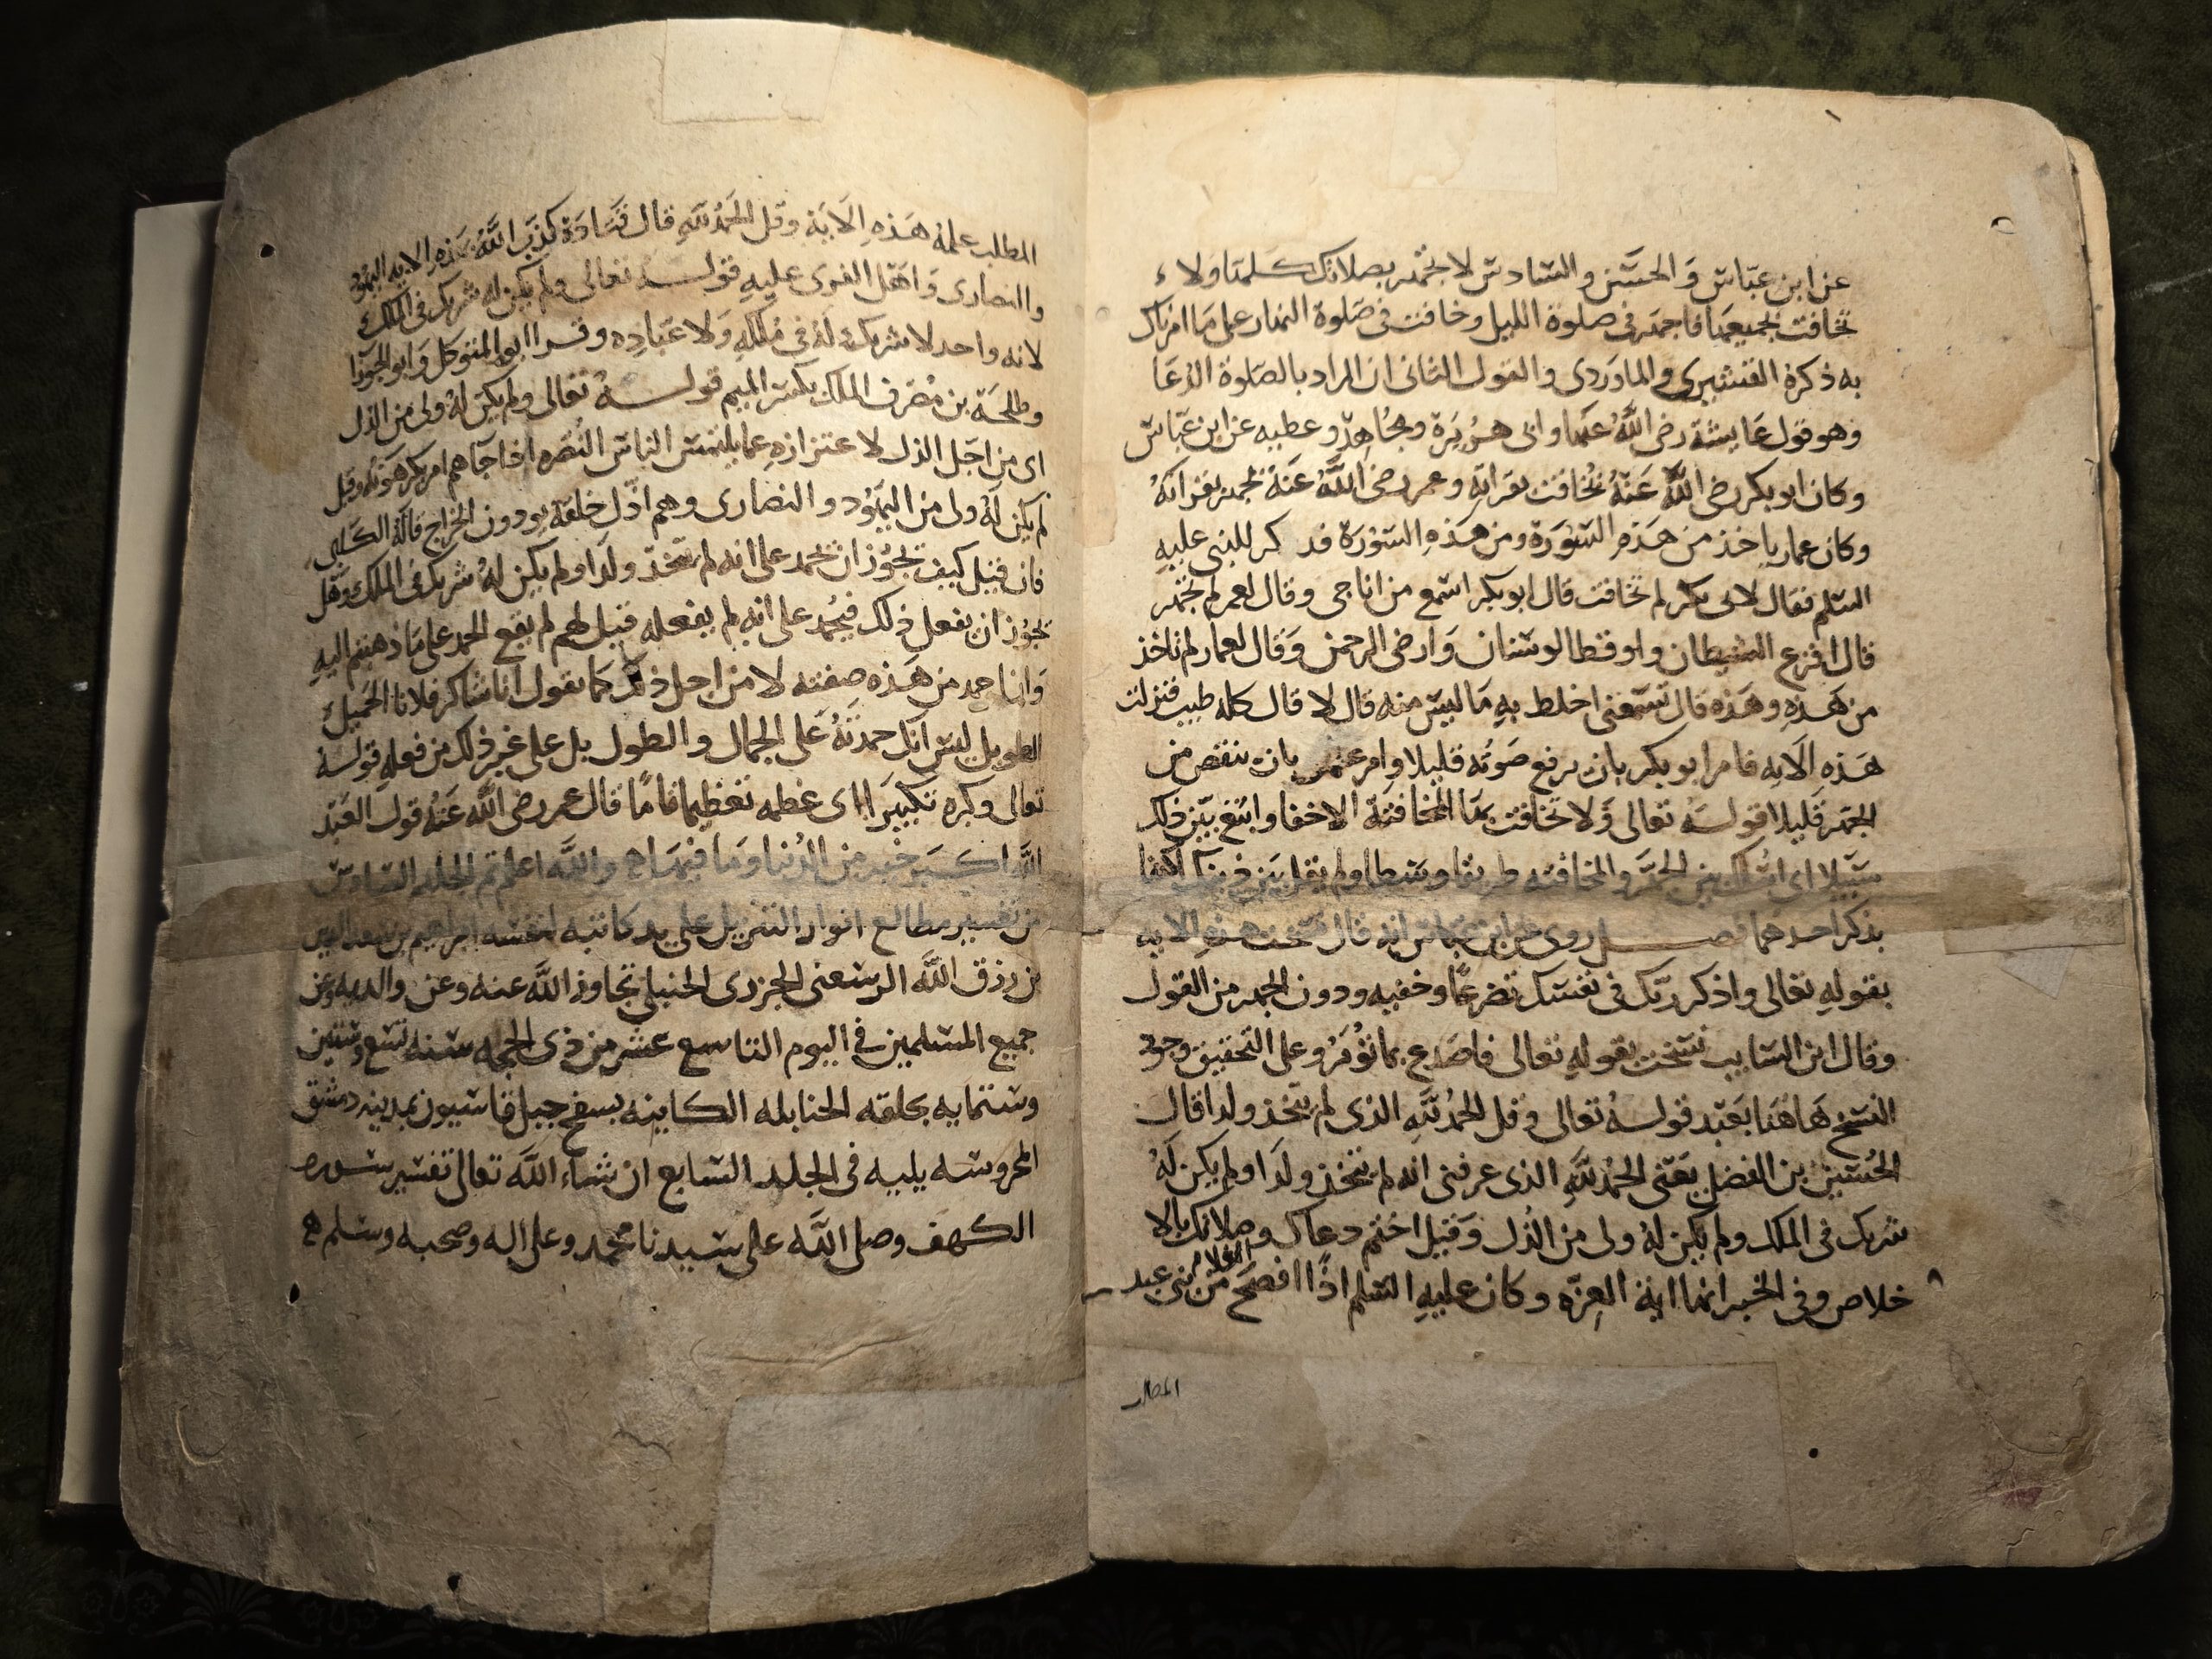 عن ابن عباس والحسن والسادس لا تجهر بصلاتك كلها ولا
تخافت بجميعها فاجهر في صلوة الليل وخافت في صلوة النهار على ما امرناك
به ذكره القشيري والماوردي والقول الثاني ان المراد بالصلوة الدعا
وهو قول عايشة رضي الله عنها وابي هريرة ومجاهد وعطيه عن ابن عباس
وكان ابو بكر رضي الله عنه يخافت بقراته وعمر رضي الله عنه يجهر بقراته
وكان عمار ياخذ من هذه السورة ومن هذه السورة فذكر للنبي عليه
السلم فقال لابي بكر لم تخافت قال ابو بكر اسمع من اناجي وقال لعمر لم تجهر
قال افزع الشيطان واوقظ الوسنان وارضي الرحمن وقال لعمار لم تاخذ
من هذه وهذه قال تسمعني اخلط به ما ليس منه قال لا قال كله طيب فنزلت
هذه الايه فامر ابو بكر بان يرفع صوته قليلا وامر عمر بان ينقص من
الجهر قليلا قوله تعالى ولا تخافت بها المخافتة الاخفا وابتغ بين ذلك
سبيلا اي اسلك بين الجهر والمخافته طريقا وسطا ولم يقل بين ذينك اكتفا
بذكر احدهما فصل روي عن ابن عباس انه قال نسخت هذه الايه
بقوله تعالى واذكر ربك في نفسك تضرعا وخفيه ودون الجهر من القول
وقال ابن السايب نسخت بقوله تعالى فاصدع بما تؤمر وعلى التحقيق وجود
النسخ هاهنا بعيد قوله تعالى وقل الحمد لله الذي لم يتخذ ولدا قال
الحسين بن الفضل يعني الحمد لله الذي عرفني انه لم يتخذ ولدا ولم يكن له
شريك في الملك ولم يكن له ولي من الذل وقيل اختم دعاك وصلاتك بالا
خلاص وفي الخبر انها اية العزه وكان عليه السلم اذا افصح الغلام من بني عبد
المطلب
المطلب علمه هذه الاية وقل الحمد لله قال قتادة كذب الله بهذه الايه اليهود
والنصارى واهل الفرى عليه قوله تعالى ولم يكن له شريك في الملك
لانه واحد لا شريك له في ملكه ولا عباده وقرا ابو المتوكل وابو الجوزا
وطلحة بن مصرف الملك بكسر الميم قوله تعالى ولم يكن له ولي من الذل
اي من اجل الذل لاعتزازه عما يلتمس الناس النصره اذا جاهم امر يكرهونه وقيل
لم يكن له ولي من اليهود والنصارى وهم اذل خلقه يودون الخراج قاله الكلبي
فان قيل كيف يجوز ان يحمد على انه لم يتخذ ولدا ولم يكن له شريك في الملك وهل
يجوز ان يفعل ذلك فيحمد على انه لم يفعله قيل لهم لم يقع الحمد على ما ذهبتم اليه
وانما حمد من هذه صفته لا من اجل ذلك كما يقول انا شاكر فلانا الجميل
الطويل ليس انك حمدته على الجمال والطول بل على غير ذلك من فعله قوله
تعالى وكبره تكبيرا اي عظمه تعظيما تاما قال عمر رضي الله عنه قول العبد
الله اكبر خير من الدنيا وما فيها والله اعلم تم المجلد السادس
من تفسير مطالع انوار التنزيل على يد كاتبه لنفسه ابراهيم بن
بن رزق الله الرسعني الجزري الحنبلي تجاوز الله عنه وعن والديه وعن
جميع المسلمين في اليوم التاسع عشر من ذي الحجه سنه تسع وستين
وستمايه بحلقه الحنابله الكاينه بسفح جبل قاسيون بمدينه دمشق
المحروسه يليه في المجلد السابع ان شاء الله تعالى تفسير سوره
الكهف وصلى الله على سيدنا محمد وعلى اله وصحبه وسلم